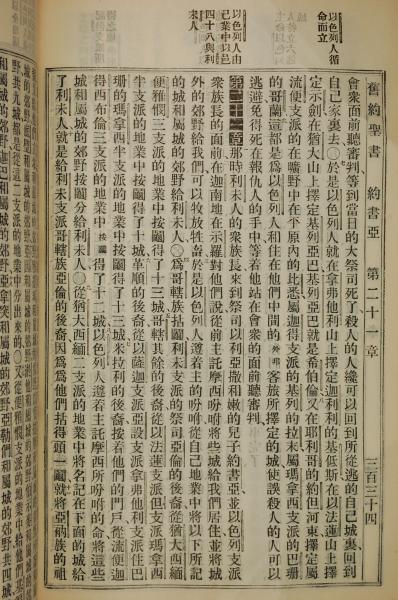 舊約聖書 約書亞 第二十一章 三百三十四
以色列人循
命而立
會衆面前聽審判等到當日的大祭司死了殺人的人纔可以回到所從逃的自己城裏回到
自己家裏去○於是以色列人就在拿弗他利山上擇定迦利利的基低斯在以法蓮山上擇
定示劍在猶大山上擇定基列亞巴基列亞巴就是希伯倫又在耶利哥的約但河東擇定屬
流便支派的在曠野中在平原內的比悉屬迦得支派的基列的拉末屬瑪拿西支派的巴珊
的哥蘭這都是爲以色列人和住在他們中間的外邦客旅所擇定的城使誤殺人的人可以
逃避免得死在報仇人的手中等着他站在會衆的面前聽審判
以色列人由
己業中以邑
四十八與利
未人
第二十一章那時利未人的衆族長來到祭司以利亞撒和嫩的兒子約書亞並以色列支派
衆族長的面前在迦南地在示羅對他們說從前主託摩西吩咐將些城給我們居住並將城
外的郊野給我們可以牧放牲畜於是以色列人遵着主的吩咐從自己地業中將以下所記
的城和屬城的郊野給利未人○爲哥轄族拈鬮利未支派的祭司亞倫的後裔從猶大西緬
便雅憫三支派的地業中按鬮得了十三城哥轄其餘的後裔從以法蓮支派但支派瑪拿西
半支派的地業中按鬮得了十城革順的後裔從以薩迦支派亞設支派拿弗他利支派住巴
珊的瑪拿西半支派的地業中按鬮得了十三城米拉利的後裔按着他們的門戶從流便迦
得西布倫三支派的地業中按鬮得了十二城以色列人遵着主託摩西所吩咐的命將這些
城和屬城的郊野按鬮分給利未人○從猶大西緬二支派的地業中將名記在下面的城給
了利未人就是給利未支派哥轄族亞倫的後裔因爲他們拈得頭一鬮就將亞衲族的祖